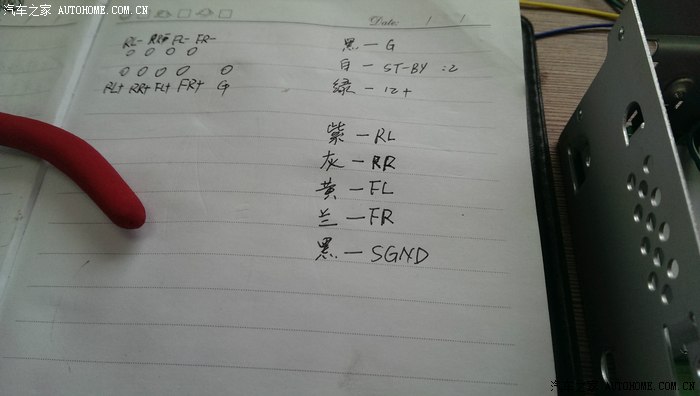 汽车之家 AUTOHOME.COM.CN
Date: / /
RL- RR- FL- FR-
RL+ RR+ FL+ FR+ G
黑 — G
白 — ST-BY :2
绿 — 12+
紫 — RL
灰 — RR
黄 — FL
兰 — FR
黑 — SGND
汽车之家 AUTOHOME.COM.CN